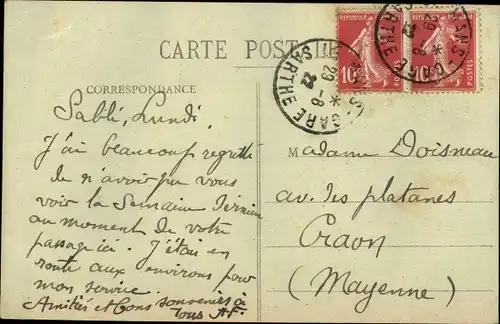 CARTE POSTALE
CORRESPONDANCE
Sablé, Lundi
J'ai beaucoup regretté
de n'avoir pu vous
voir la Semaine dernière
au moment de votre
passage ici. J'étais en
route aux environs pour
mon service.
Amitiés et bons souvenirs à
tous A.F.
Madame Doisneau
av. des platanes
Craon
(Mayenne)
REPUBLIQUE
10
POSTES
10
POSTES
GARE
SARTHE
29 -8
22